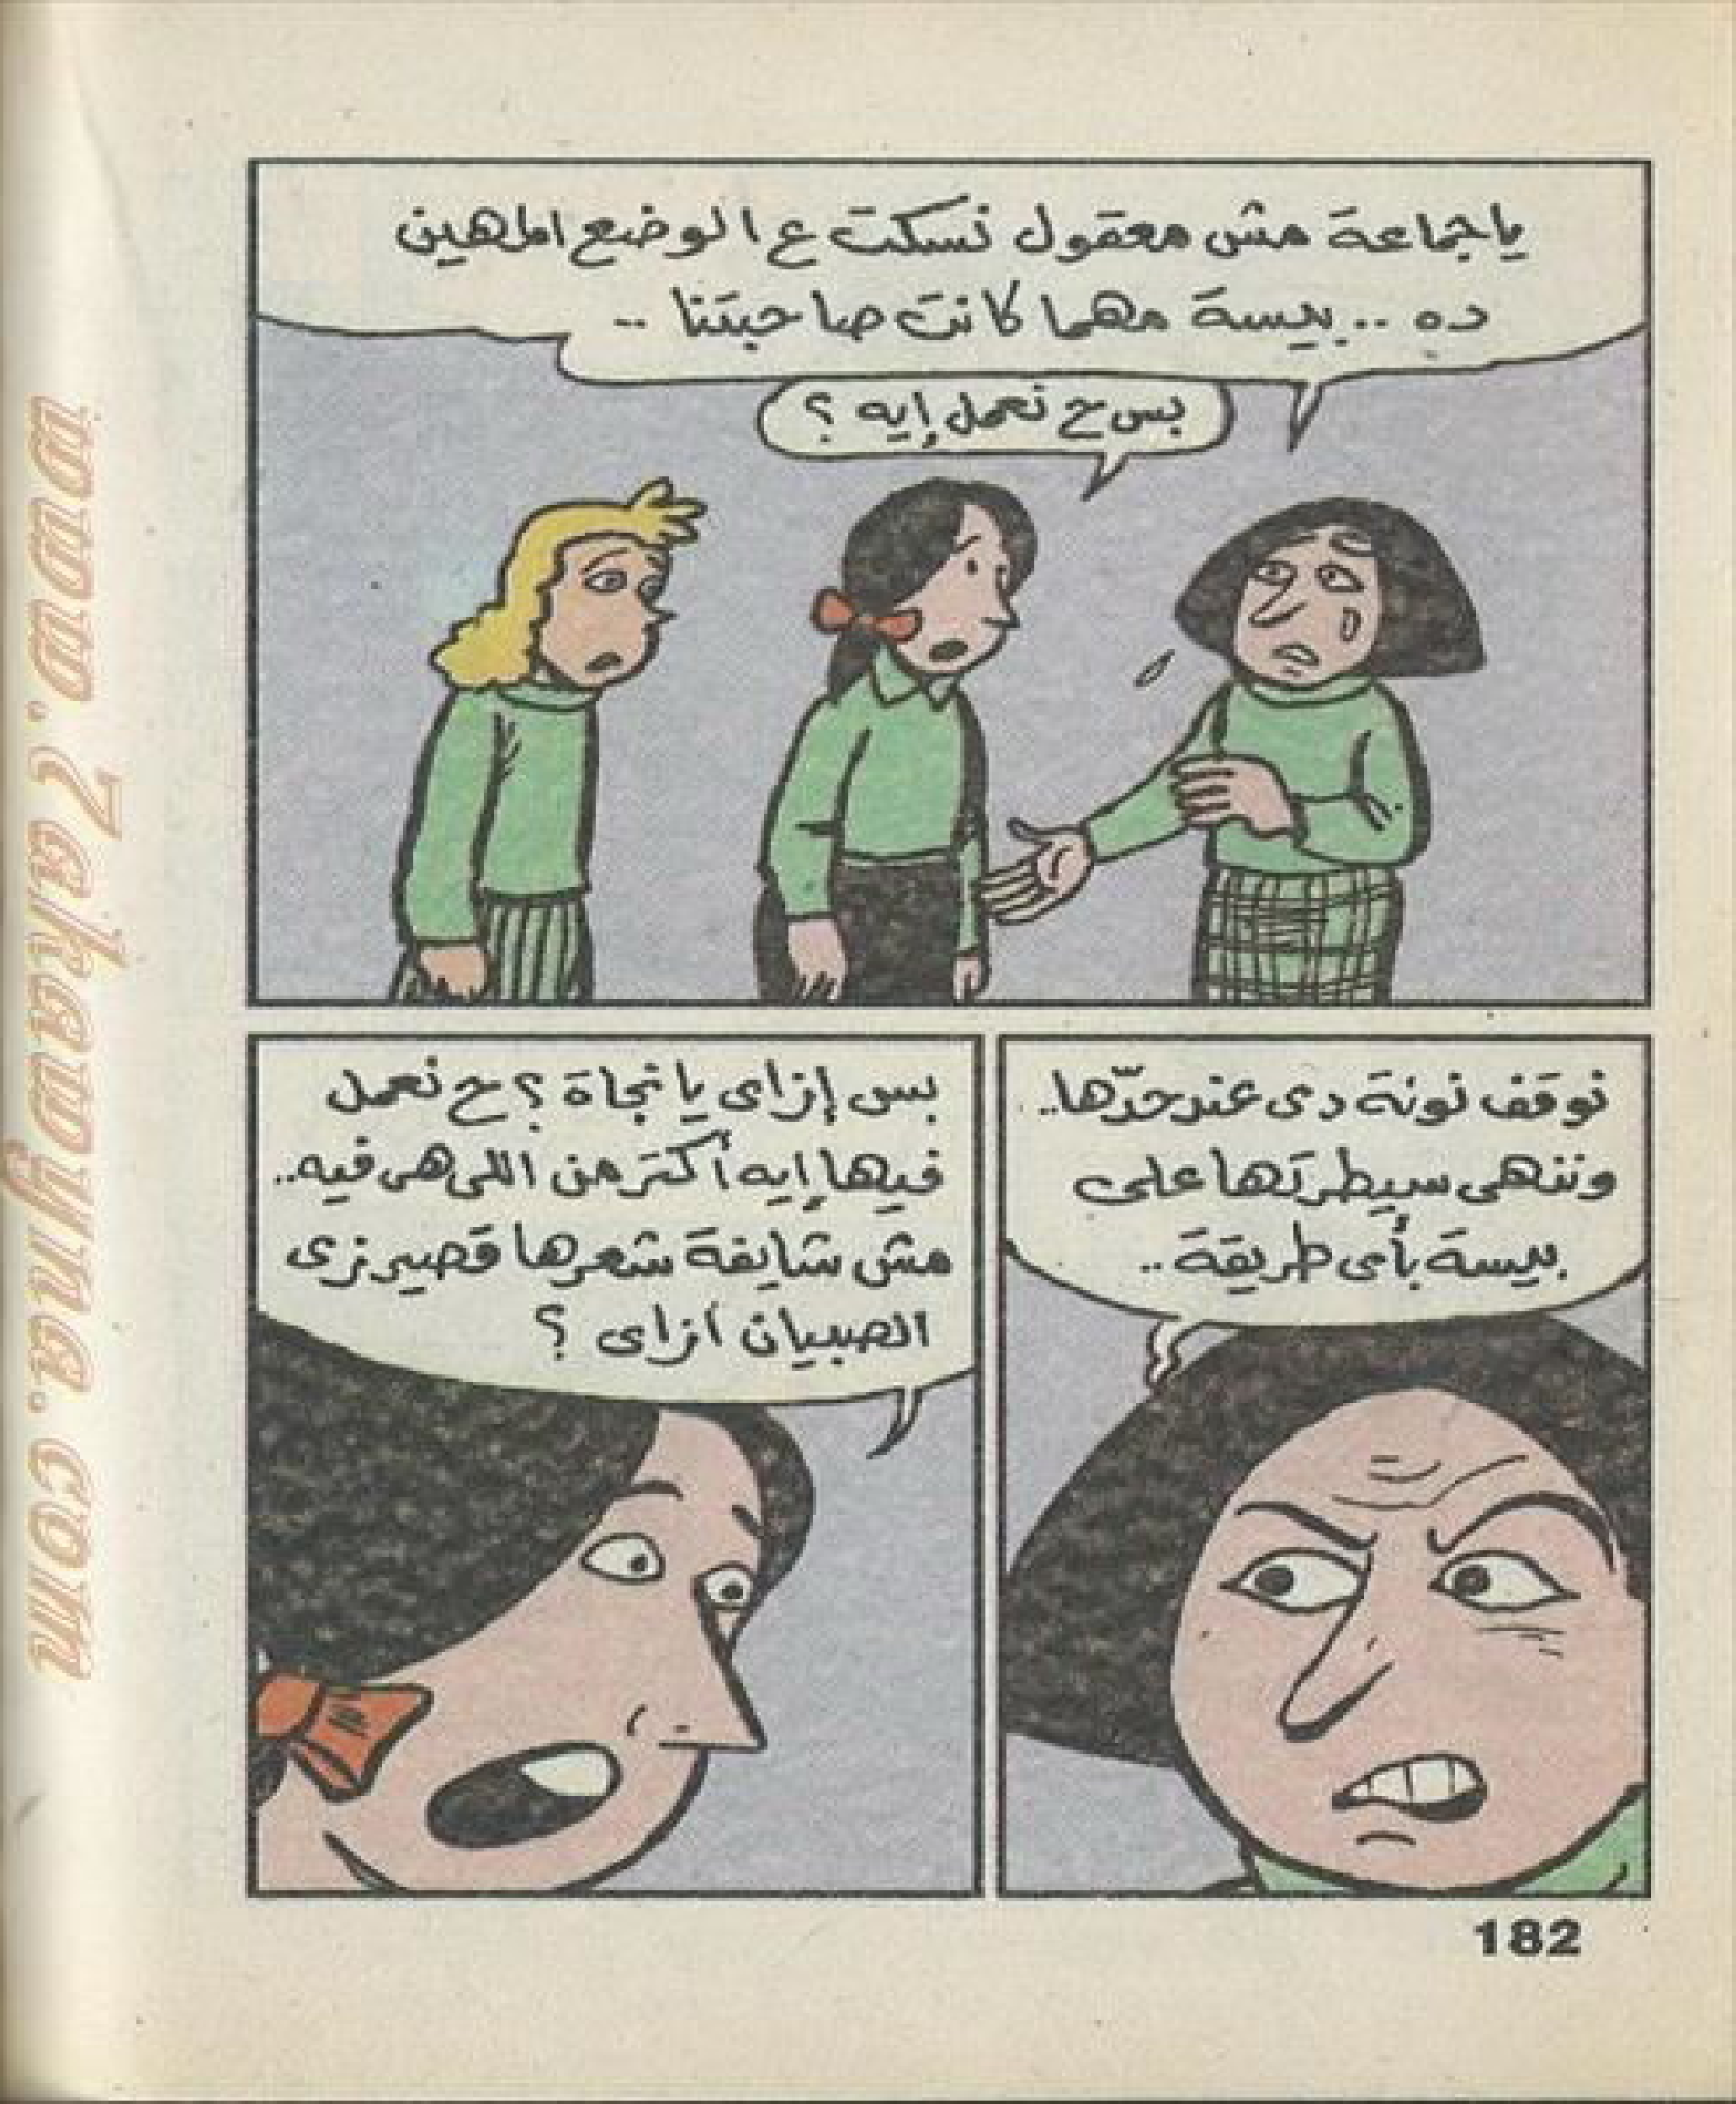 ياجماعة مش معقول نسكت ع الوضع المهين
ده .. بيسة مهما كانت صاحبتنا ..
بس ح نعمل إيه ؟
نوقف نونة دى عند حدّها..
وننهى سيطرتها على
بيسة بأى طريقة ..
بس إزاى يا نجاة ؟ ح نعمل
فيها إيه أكتر من اللى هى فيه..
مش شايفة شعرها قصير زى
الصبيان ازاى ؟
182
www.7akawyina.com